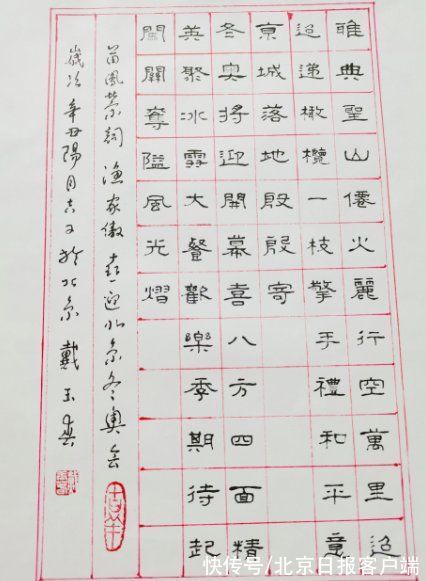 雅典聖山僊火麗行空萬里迢
迢遞橄欖一枝擎手禮和平意
京城落地殷殷寄
冬奥將迎開幕喜八方四面精
英聚冰雪大餐歡樂季期待起
闖關奪隘風光熠
風詞漁家傲喜迎北京冬奥会
歲次辛丑陽月吉日於北京戴玉
快传号/北京日报客户端